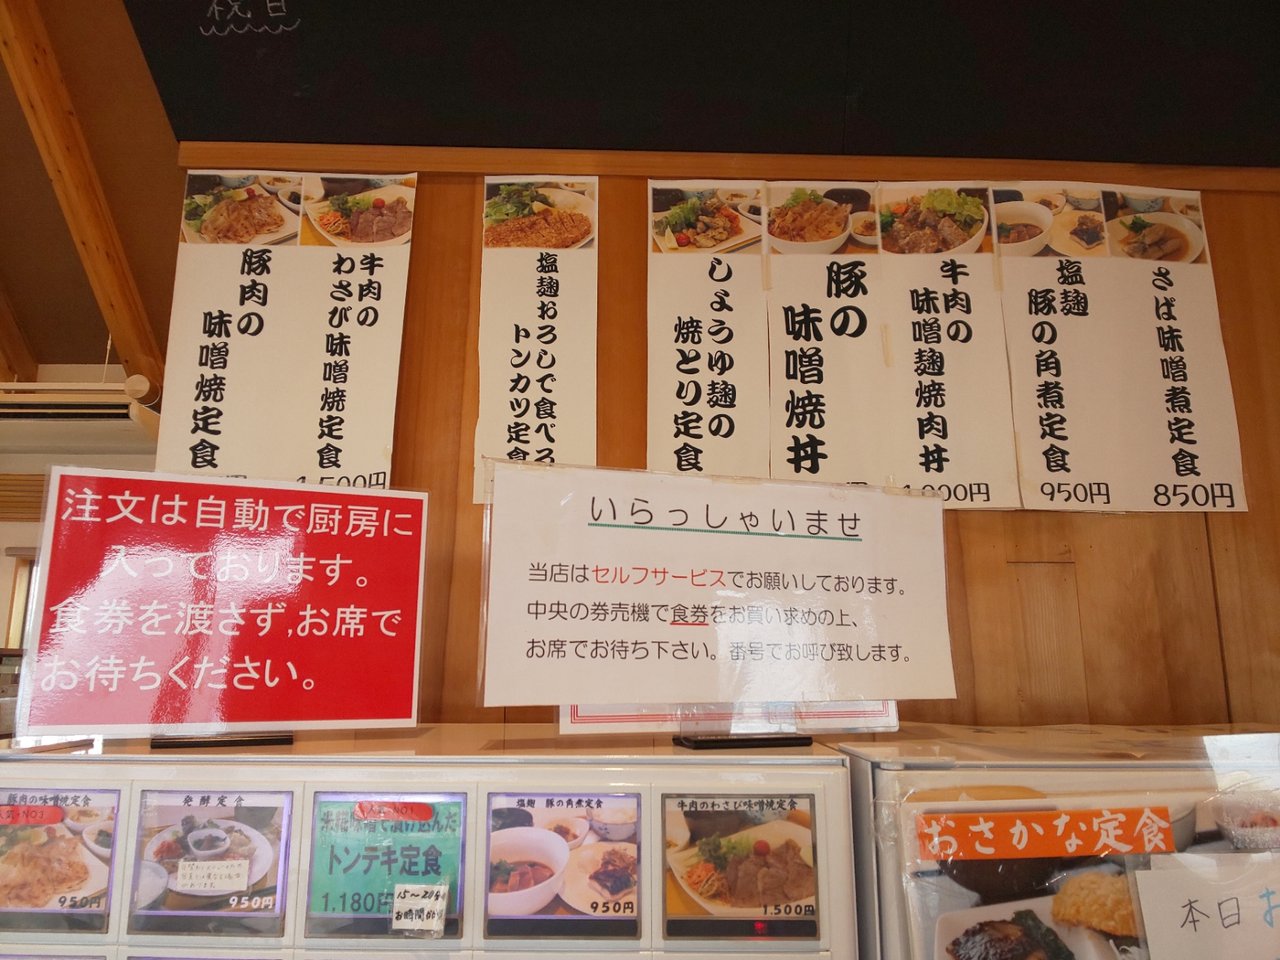 祝日
豚肉の
味噌焼定食
牛肉の
わさび味噌焼定食
1,500円
塩麹おろしで食べる
トンカツ定食
しょうゆ麹の
焼とり定食
豚の
味噌焼丼
牛肉の
味噌麹焼肉丼
塩麹
豚の角煮定食
950円
さば味噌煮定食
850円
注文は自動で厨房に
入っております。
食券を渡さず,お席で
お待ちください。
いらっしゃいませ
当店はセルフサービスでお願いしております。
中央の券売機で食券をお買い求めの上、
お席でお待ち下さい。番号でお呼び致します。
豚肉の味噌焼定食
人気・NO3
950円
発酵定食
950円
人気・NO1
米糀味噌で漬け込んだ
トンテキ定食
1,180円
15〜20分
お時間
塩麹 豚の角煮定食
950円
牛肉のわさび味噌焼定食
1,500円
おさかな定食
本日お